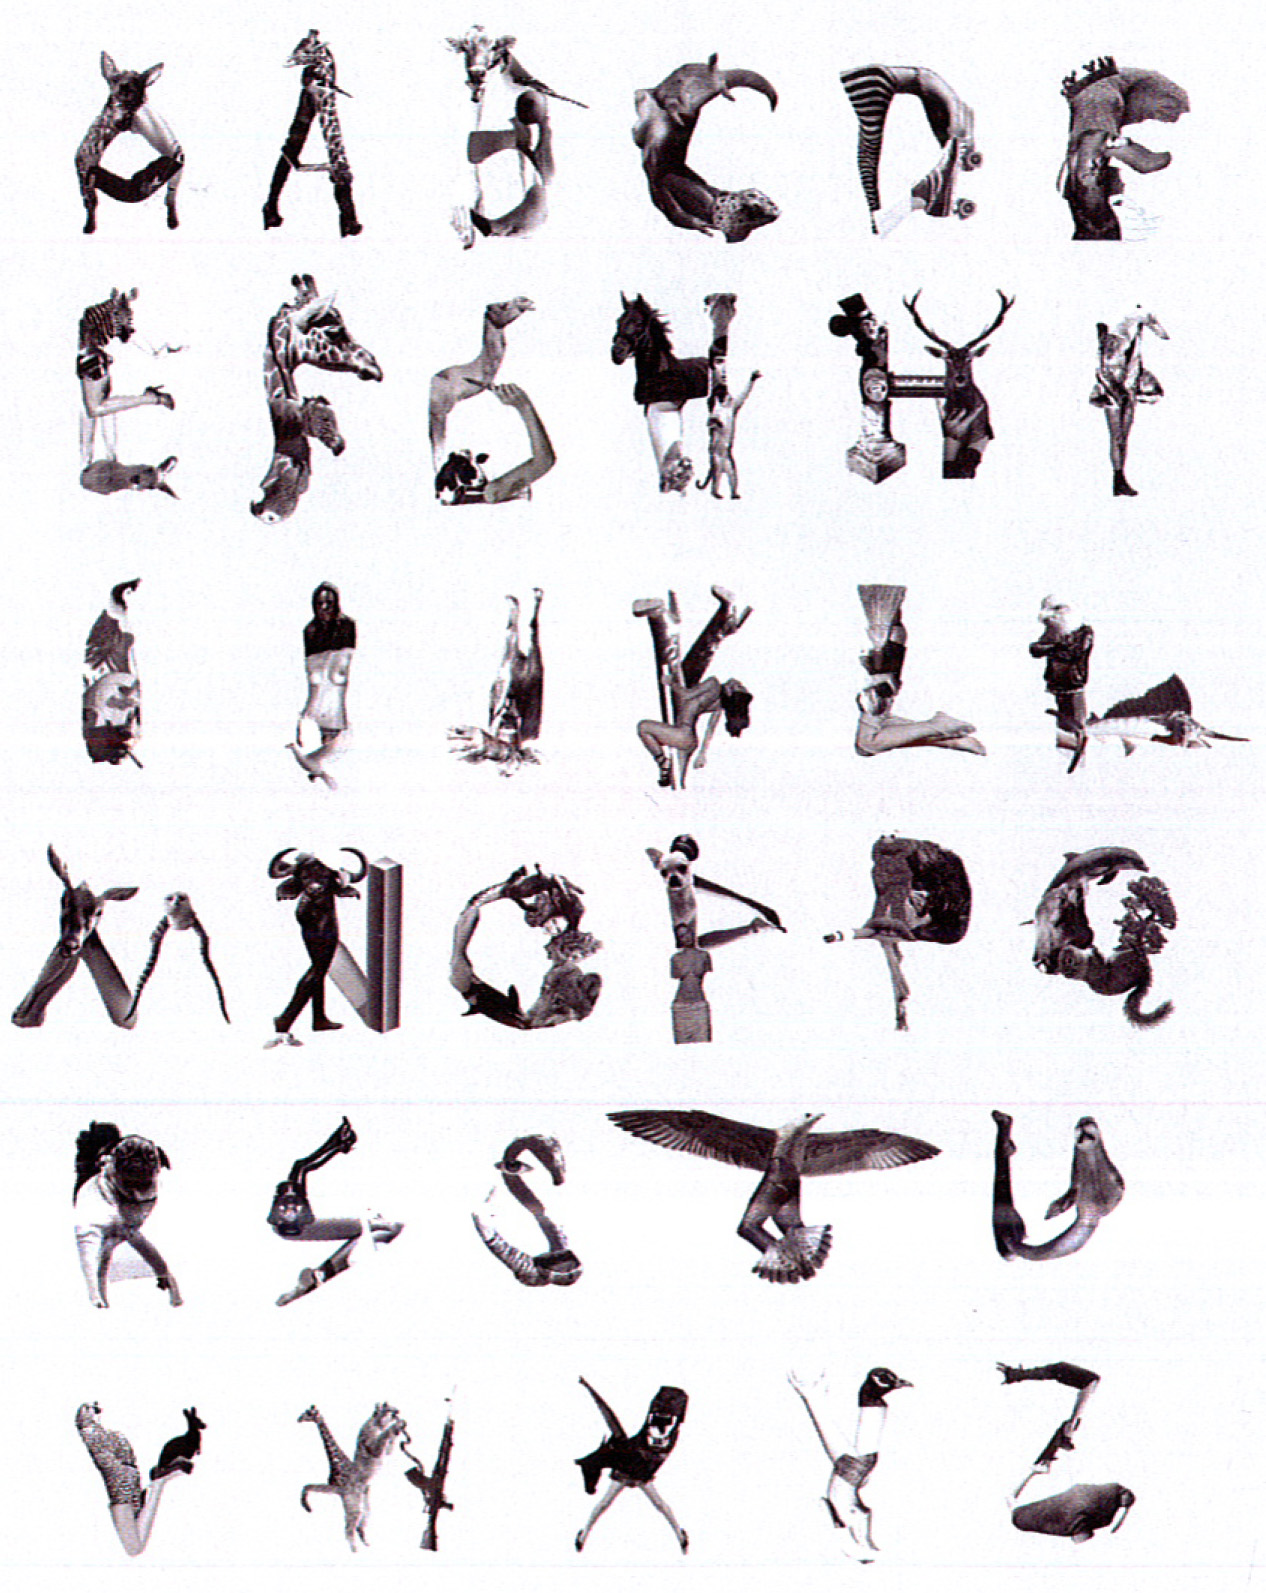 A A B C D E
E F G H H I
I I J K L L
M N O P P Q
R S S T U
V W X Y Z